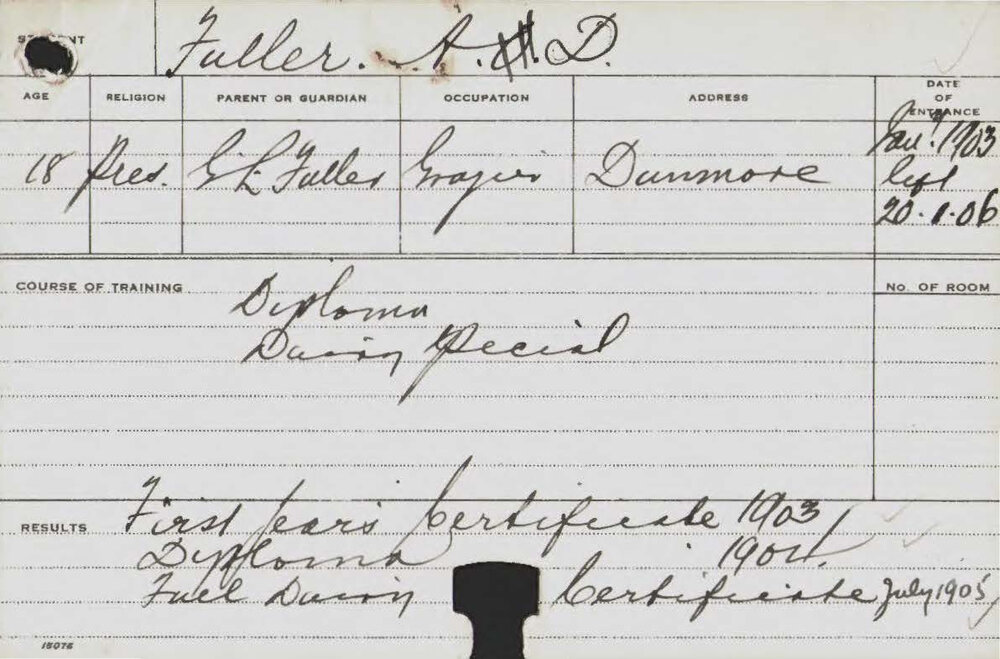 STUDENT Fuller. A. H. D.
AGE RELIGION PARENT OR GUARDIAN OCCUPATION ADDRESS DATE OF ENTRANCE
18 Pres. G L Fuller Grazier Dunmore Jan. 1903
left
20.1.06
COURSE OF TRAINING No. OF ROOM
Diploma
Dairy Special
RESULTS First Years Certificate 1903
Diploma 1904.
Full Dairy Certificate July 1905
15076